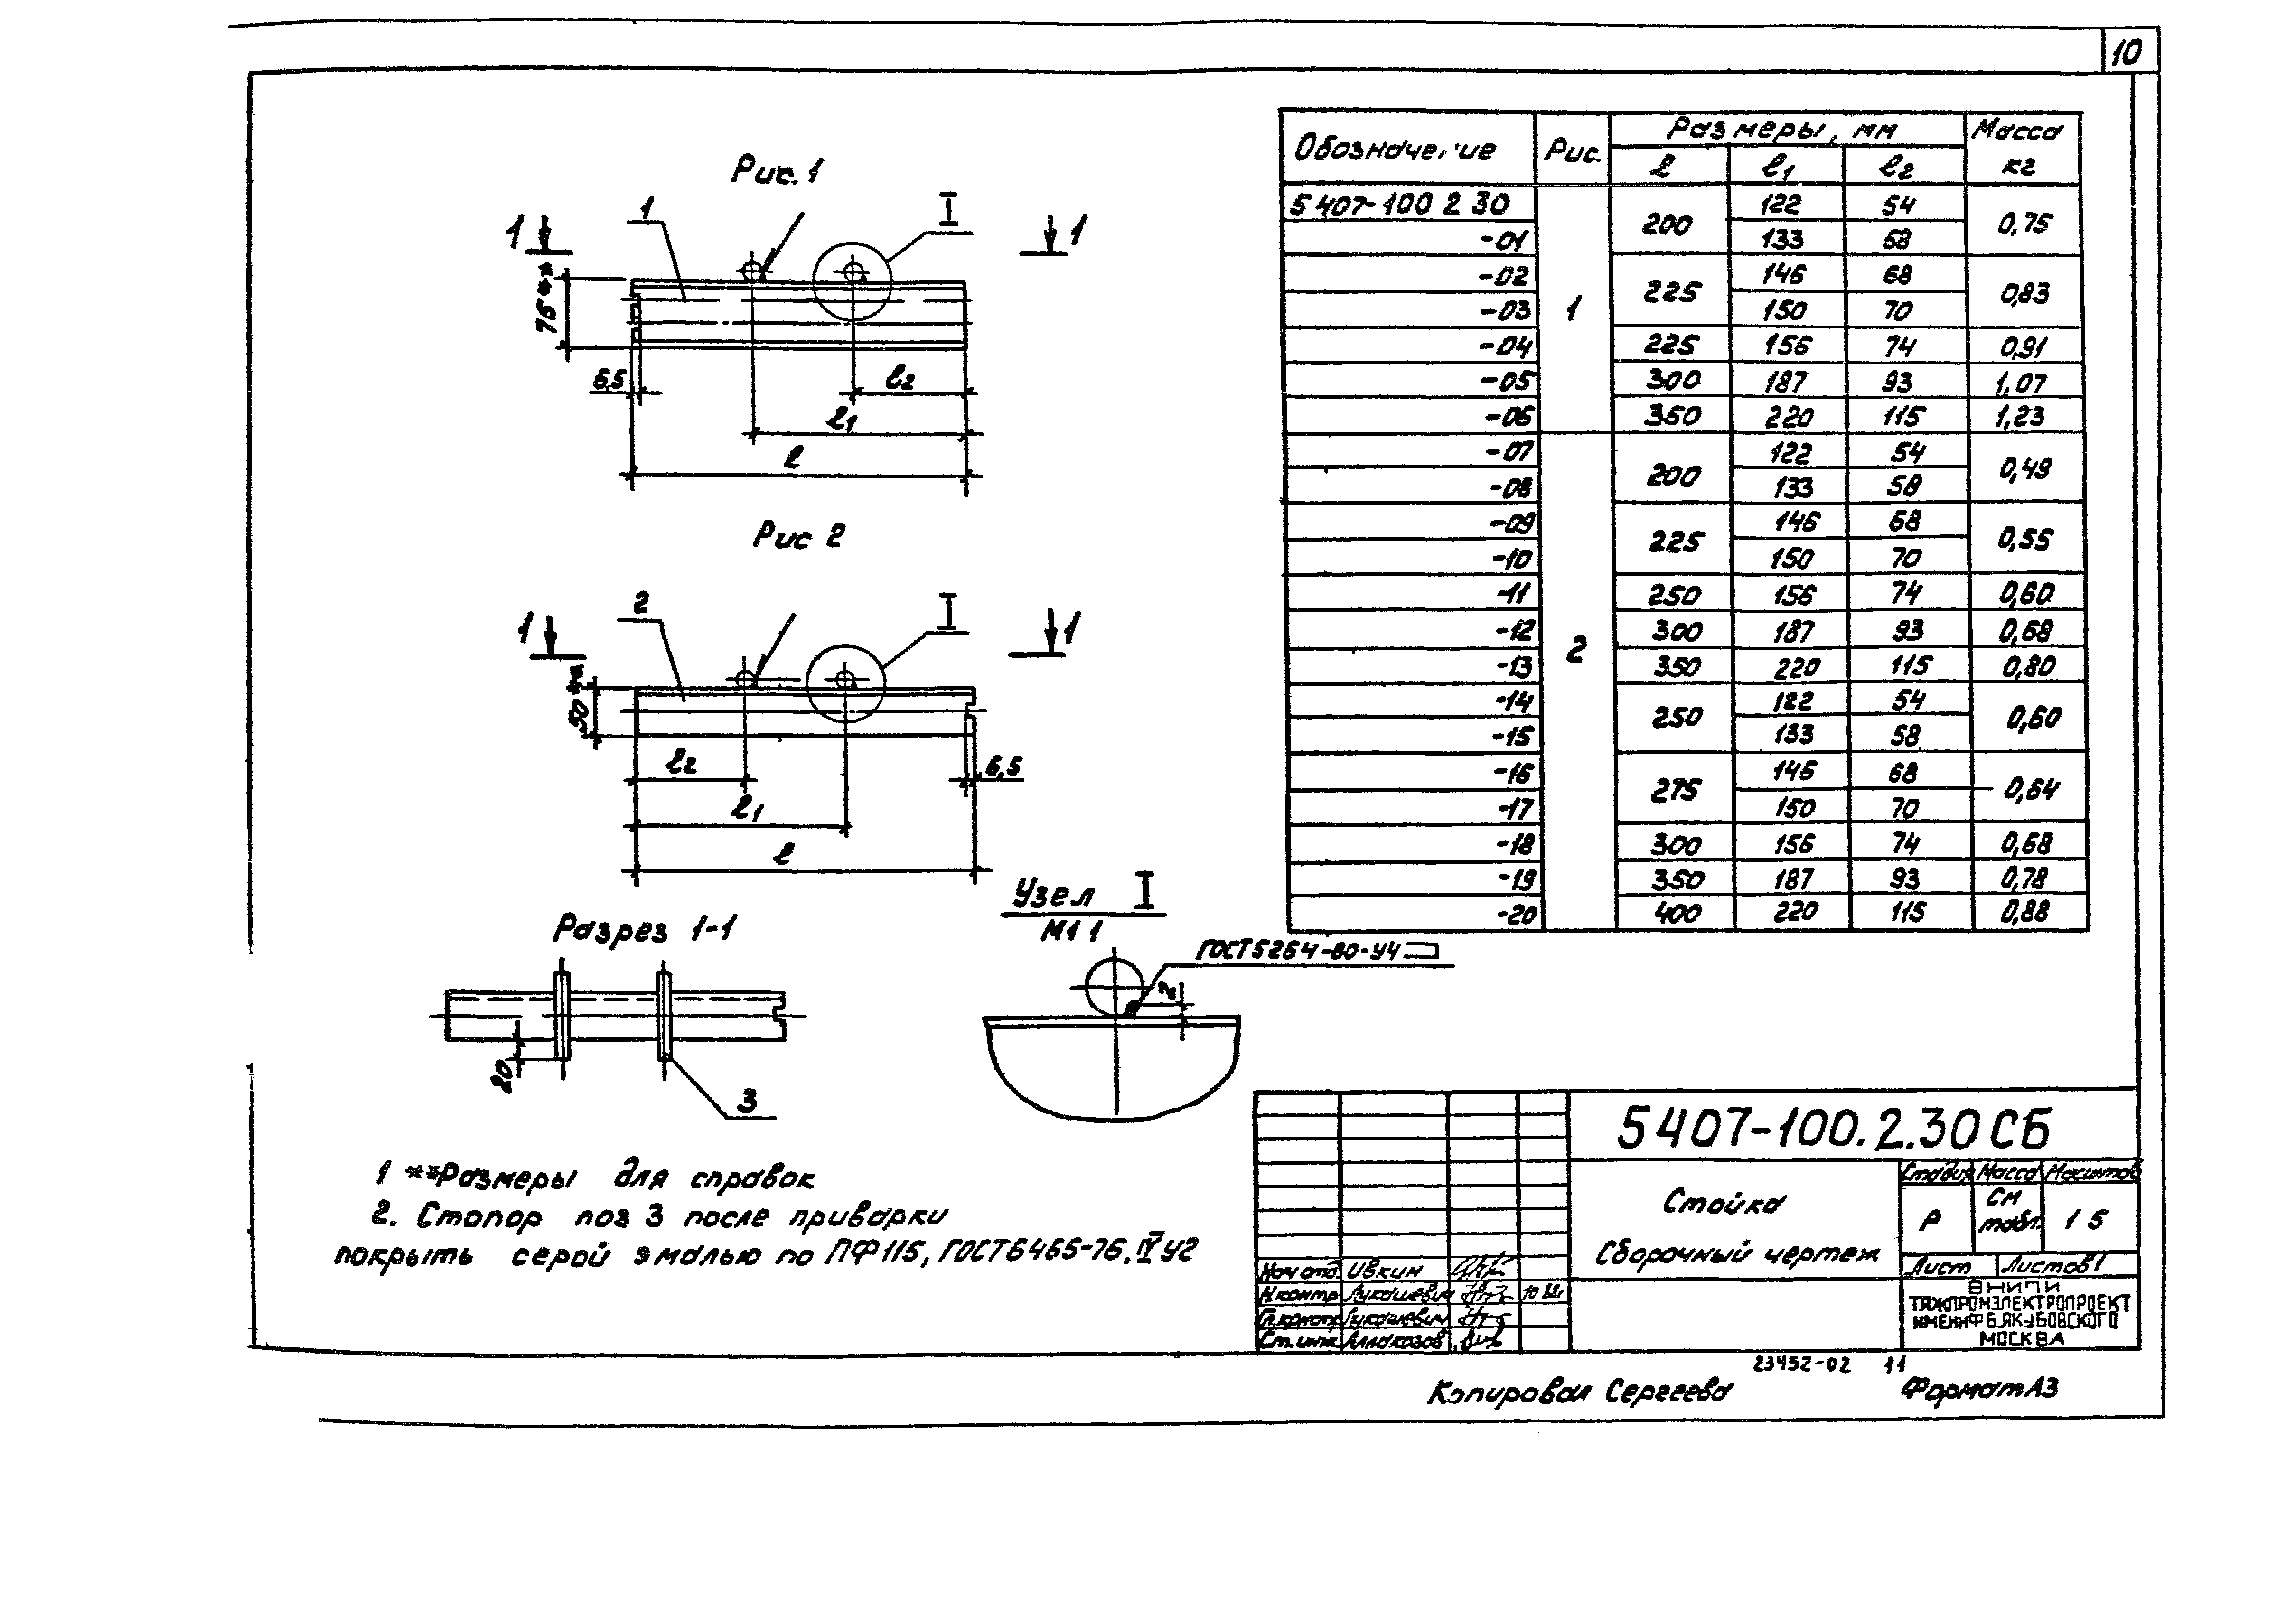 10
Рис. 1
1
I
1
1
75**
6,5
l2
l1
l
Рис 2
2
I
1
1
50**
l2
6,5
l1
l
Разрез 1-1
20
3
Узел I
М1 1
ГОСТ 5264-80-У4
2
Обозначение Рис. Размеры, мм Масса кг
l l1 l2
5407-100 2 30 1 200 122 54 0,75
-01 133 58
-02 225 146 68 0,83
-03 150 70
-04 225 156 74 0,91
-05 300 187 93 1,07
-06 350 220 115 1,23
-07 2 200 122 54 0,49
-08 133 58
-09 225 146 68 0,55
-10 150 70
-11 250 156 74 0,60
-12 300 187 93 0,68
-13 350 220 115 0,80
-14 250 122 54 0,60
-15 133 58
-16 275 146 68 0,64
-17 150 70
-18 300 156 74 0,68
-19 350 187 93 0,78
-20 400 220 115 0,88
1 **Размеры для справок
2. Стопор поз 3 после приварки
покрыть серой эмалью по ПФ115, ГОСТ6465-76. IV У2
5407-100.2.30 СБ
Стойка
Сборочный чертеж
Стадия Масса Масштаб
Р См табл. 1 5
Лист Листов 1
ВНИПИ
ТЯЖПРОМЭЛЕКТРОПРОЕКТ
ИМЕНИ Ф Б.ЯКУБОВСКОГО
МОСКВА
Нач отд. Ивкин
Н.контр Лукашевич
Гл.констр Лукашевич
Ст. инж.
23452-02 11
Копировал Сергеева
Формат А3